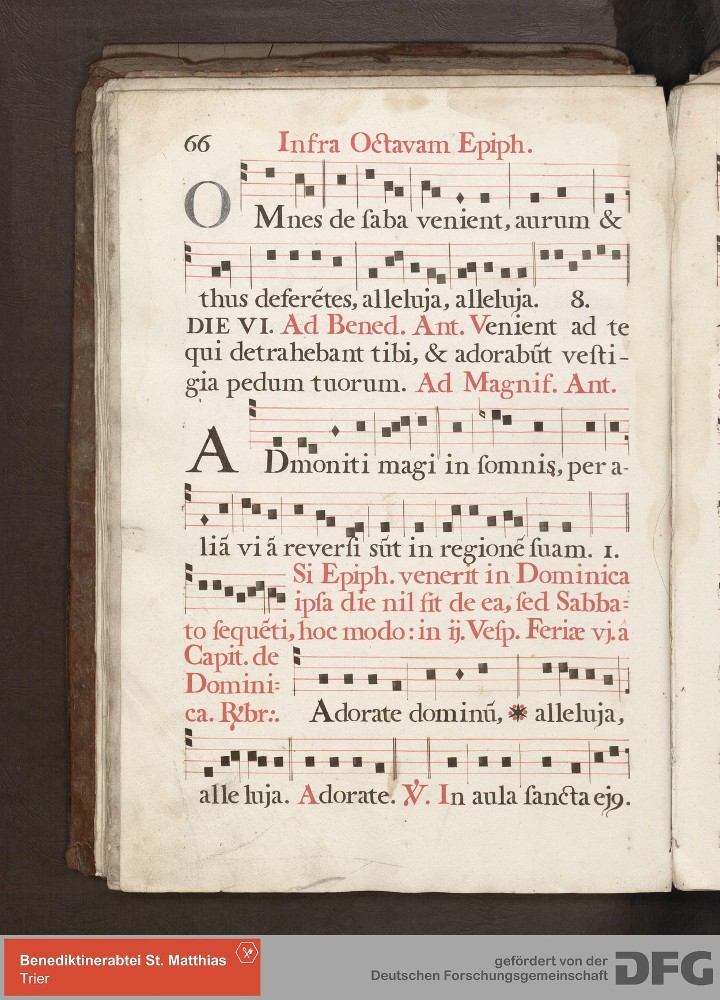 66 Infra Octavam Epiph.
OMnes de ſaba venient, aurum &
thus deferẽtes, alleluja, alleluja. 8.
DIE VI. Ad Bened. Ant. Venient ad te
qui detrahebant tibi, & adorabũt veſti-
gia pedum tuorum. Ad Magnif. Ant.
ADmoniti magi in ſomnis, per a-
liã viã reverſi sũt in regionẽ ſuam. 1.
Si Epiph. venerit in Dominica
ipſa die nil fit de ea, ſed Sabba=
to ſequẽti, hoc modo: in ij. Veſp. Feriæ vj. a
Capit. de
Domini=
ca. ℟br:.
Adorate dominũ, * alleluja,
alleluja. Adorate. ℣. In aula ſancta ejꝰ.
Benediktinerabtei St. Matthias
Trier
gefördert von der
Deutschen Forschungsgemeinschaft
DFG